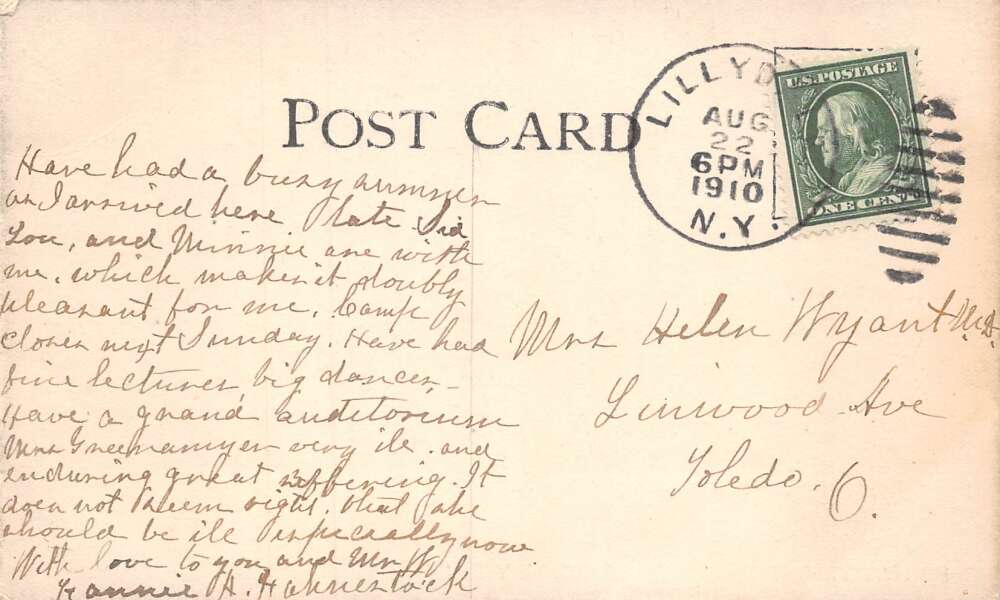 POST CARD
LILLYD
AUG
22
6 PM
1910
N.Y.
U.S. POSTAGE
ONE CENT
Have had a busy summer
as I arrived here late Sid
Lou, and Minnie are with
me, which makes it doubly
pleasant for me. Camp
closes next Sunday. Have had
fine lectures, big dances,
Have a grand auditorium
Mrs very ile. and
enduring great suffering. It
does not seem right, that she
should be ile especially now
With love to you and Mr W.
Fannie H.
Mrs Helen Wyant M.D.
Linwood Ave
Toledo. O.